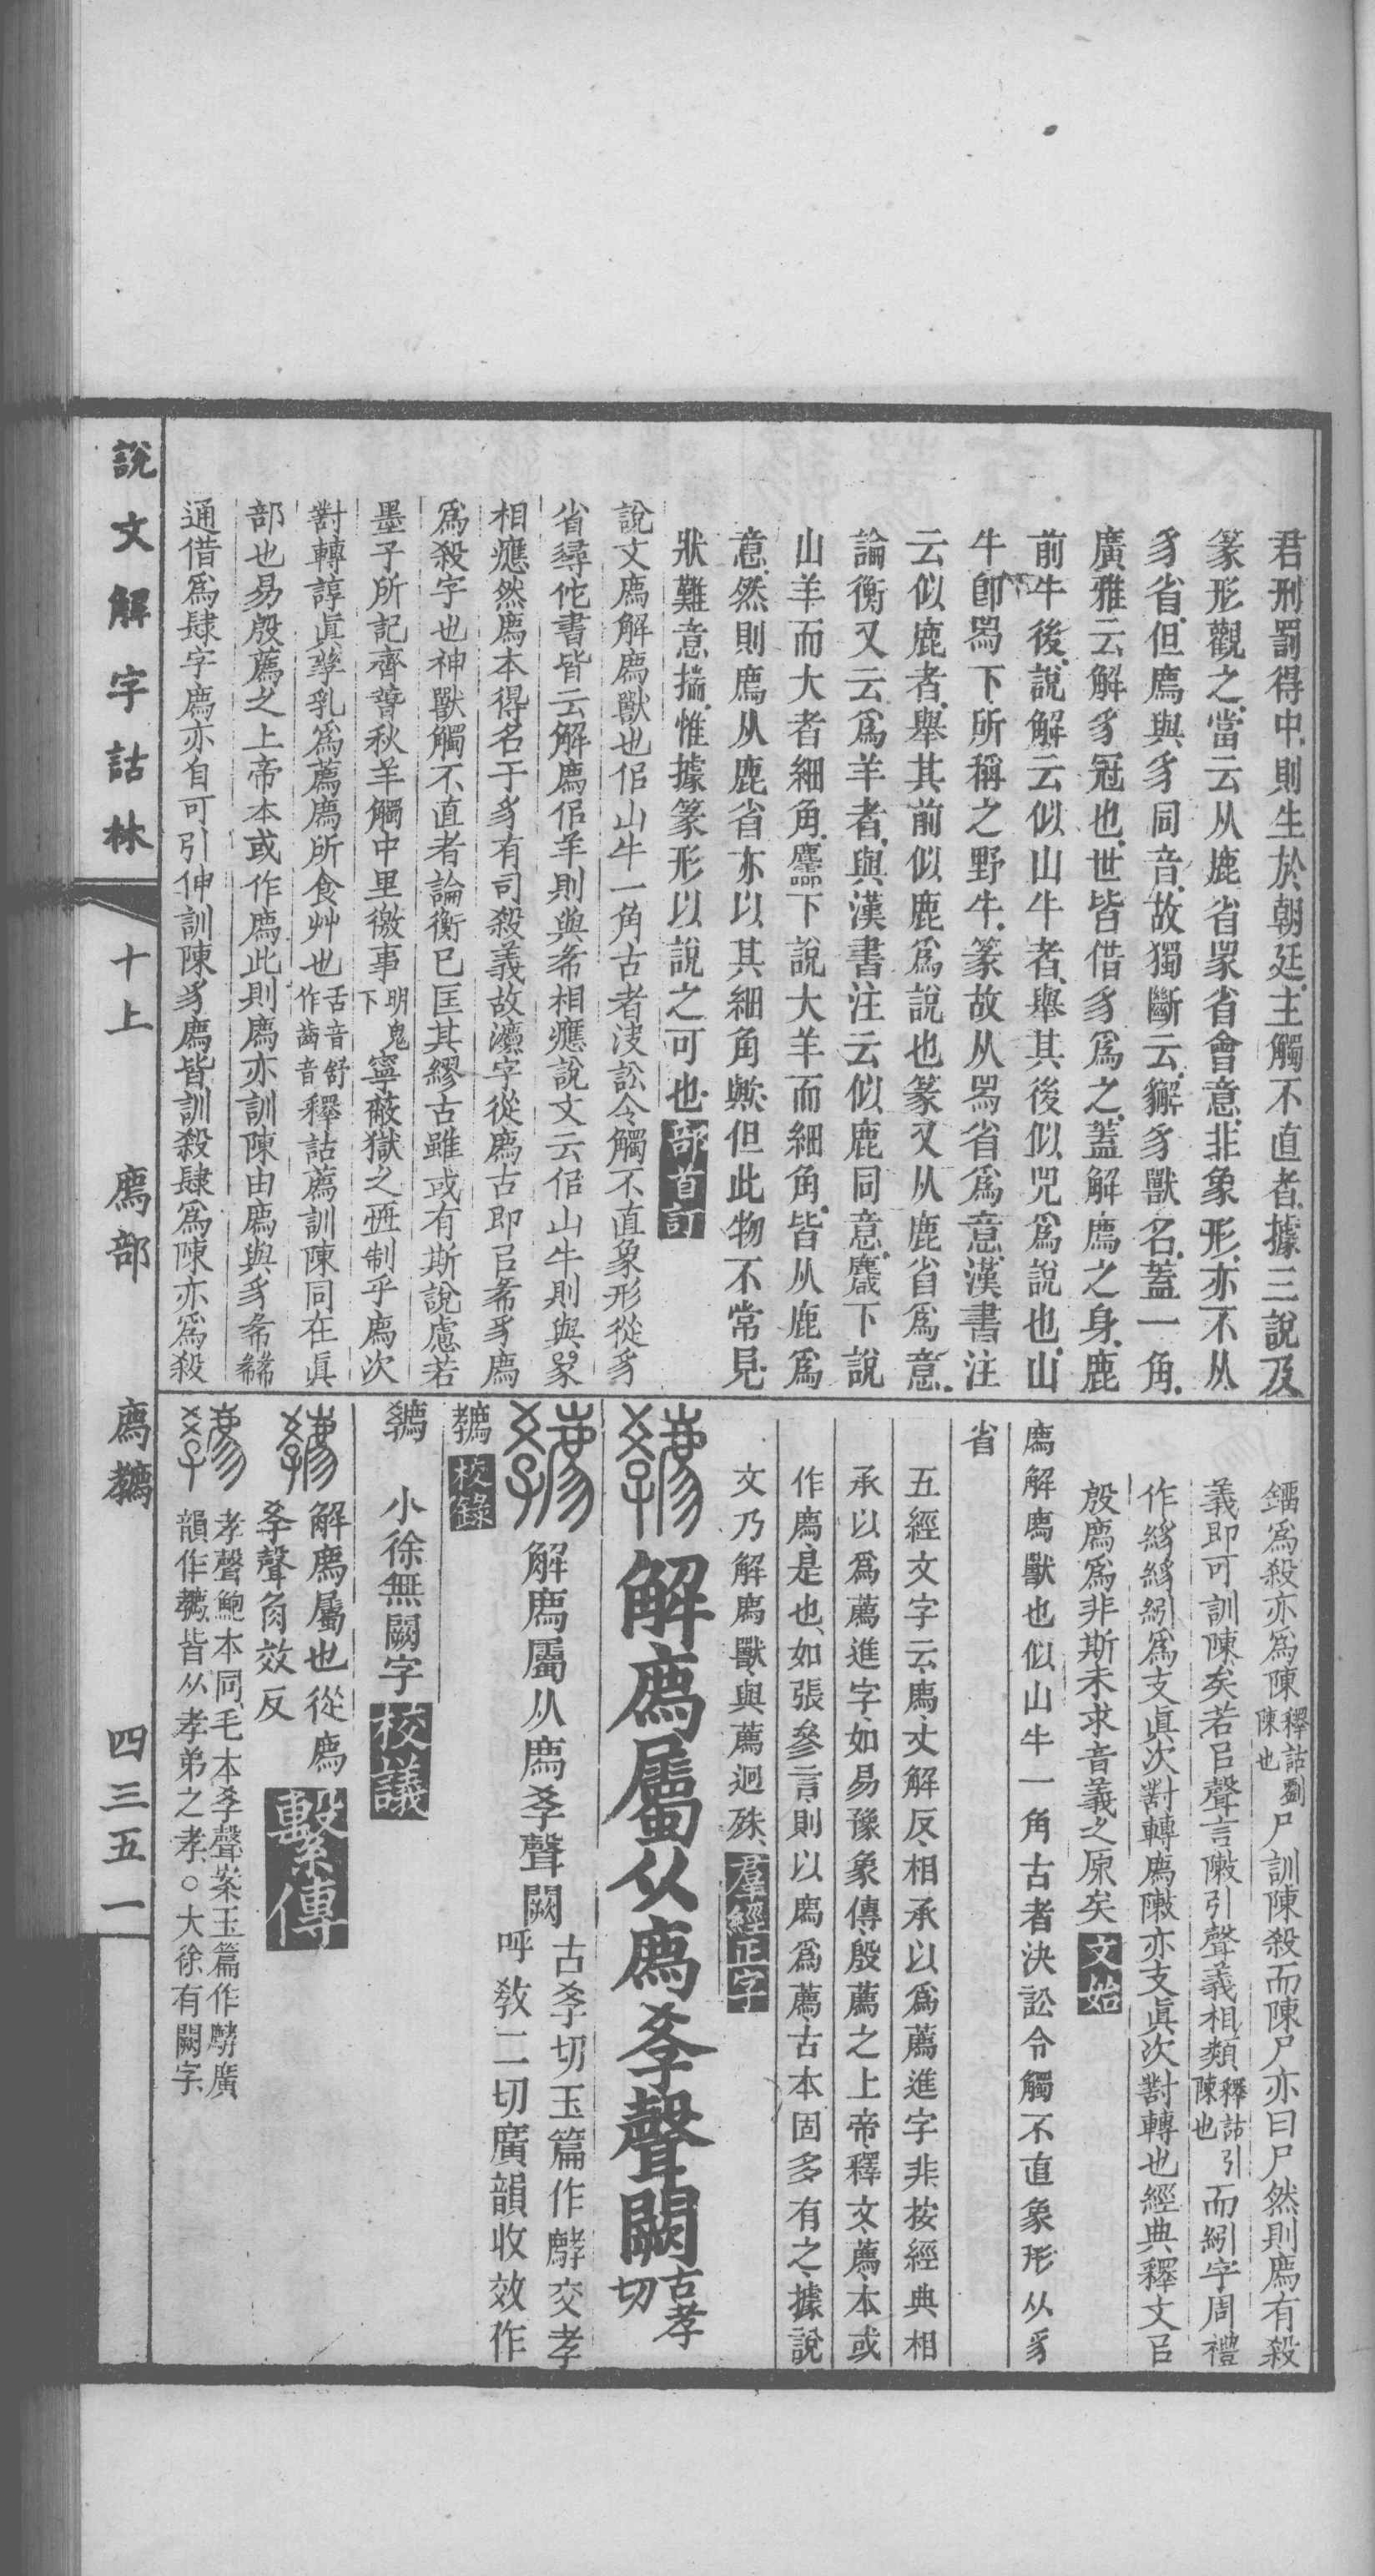 君刑罰得中則生於朝廷主觸不直者據三說及
篆形觀之當云从鹿省累省會意非象形亦不从
豸省但廌與豸同音故獨斷云獬豸獸名蓋一角
廣雅云解豸冠也世皆借豸爲之蓋解廌之身鹿
前牛後說解云似山牛者舉其後似兕爲說也山
牛卽𤉡下所稱之野牛篆故从𤉡省爲意漢書注
云似鹿者舉其前似鹿爲說也篆又从鹿省爲意
論衡又云爲羊者與漢書注云似鹿同意麙下說
山羊而大者細角麢下說大羊而細角皆从鹿爲
意然則廌从鹿省亦以其細角歟但此物不常見
狀難意揣惟據篆形以說之可也部首訂
說文廌解廌獸也佀山牛一角古者決訟令觸不直象形從豸
省尋佗書皆云解廌佀羊則與㣇相應說文云佀山牛則與𤉡
相應然廌本得名于豸有司殺義故灋字從廌古即㠯㣇豸廌
爲殺字也神獸觸不直者論衡已匡其繆古雖或有斯說慮若
墨子所記齊諅秋羊觸中里徼事明鬼下寧蔽獄之亟制乎廌次
對轉諄眞孳乳爲薦廌所食艸也舌音舒作齒音釋詁薦訓陳同在眞
部也易殷薦之上帝本或作廌此則廌亦訓陳由廌與豸㣇𢑿
通借爲肆字廌亦自可引伸訓陳豸廌皆訓殺肆爲陳亦爲殺
鐂爲殺亦爲陳釋詁劉陳也尸訓陳殺而陳尸亦曰尸然則廌有殺
義即可訓陳矣若㠯聲言敶引聲義相類釋詁引陳也而紖字周禮
作絼絼紖爲支眞次對轉廌敶亦支眞次對轉也經典釋文㠯
殷廌爲非斯未求音義之原矣文始
廌解廌獸也似山牛一角古者決訟令觸不直象形从豸
省
五經文字云廌丈解反相承以爲薦進字非按經典相
承以爲薦進字如易豫象傳殷薦之上帝釋文薦本或
作廌是也如張參言則以廌爲薦古本固多有之據說
文乃解廌獸與薦迥殊羣經正字
解廌屬从廌孝聲闕古孝切
解廌屬从廌孝聲闕古孝切玉篇作𪊽交孝呼教二切廣韻收效作
𢊁校錄
𢊁　小徐無闕字校議
解廌屬也從廌孝聲角效反繫傳
孝聲鮑本同毛本孝聲案玉篇作𪊽廣韻作𢊁皆从孝弟之孝○大徐有闕字
說文解字詁林　十上　廌部　廌𢊁　四三五一